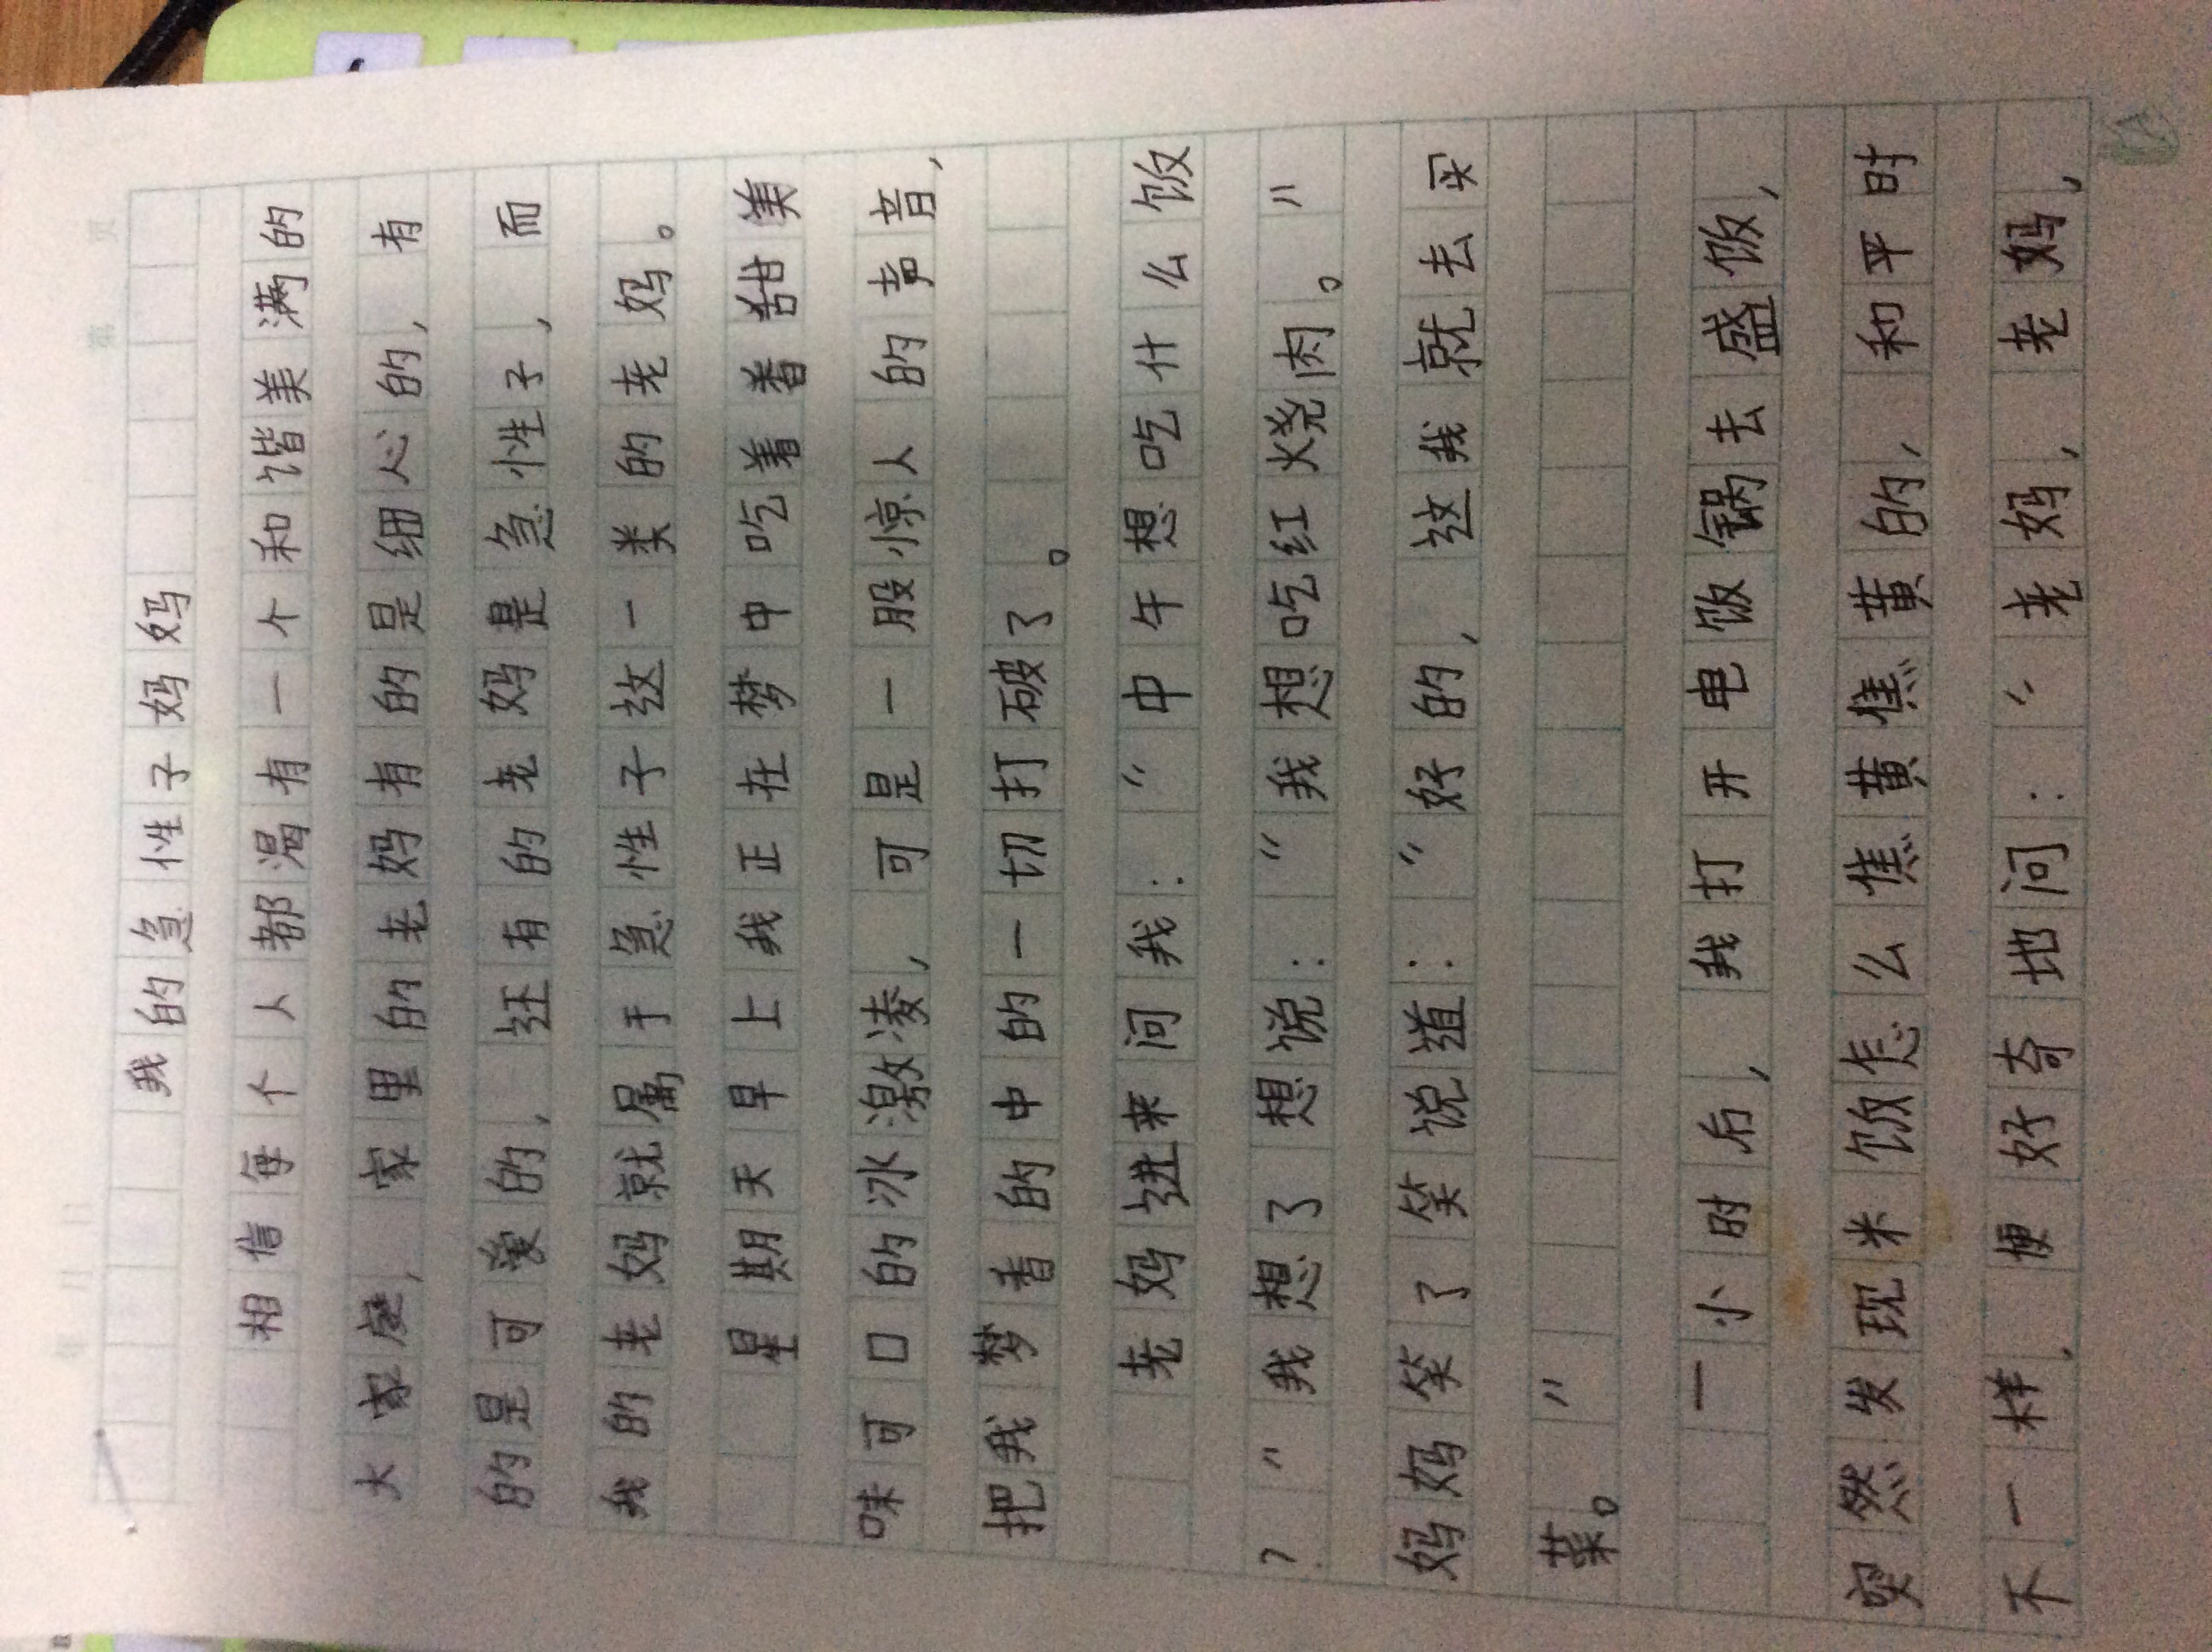 我的急性子妈妈
相信每个人都渴有一个和谐美满的
大家庭,家里的老妈有的是细心的,有
的是可爱的,还有的老妈是急性子,而
我的老妈就属于急性子这一类的老妈。
星期天早上我正在梦中吃着香甜美
味可口的冰激凌,可是一股惊人的声音,
把我梦香的中的一切打破了。
老妈进来问我:“中午想吃什么饭
?”我想了想说:“我想吃红烧肉。”
妈妈笑了笑说道:“好的,这我就去买
菜。”
一小时后,我打开电饭锅去盛饭,
突然发现米饭怎么焦黄焦黄的,和平时
不一样.便好奇地问:“老妈,老妈,